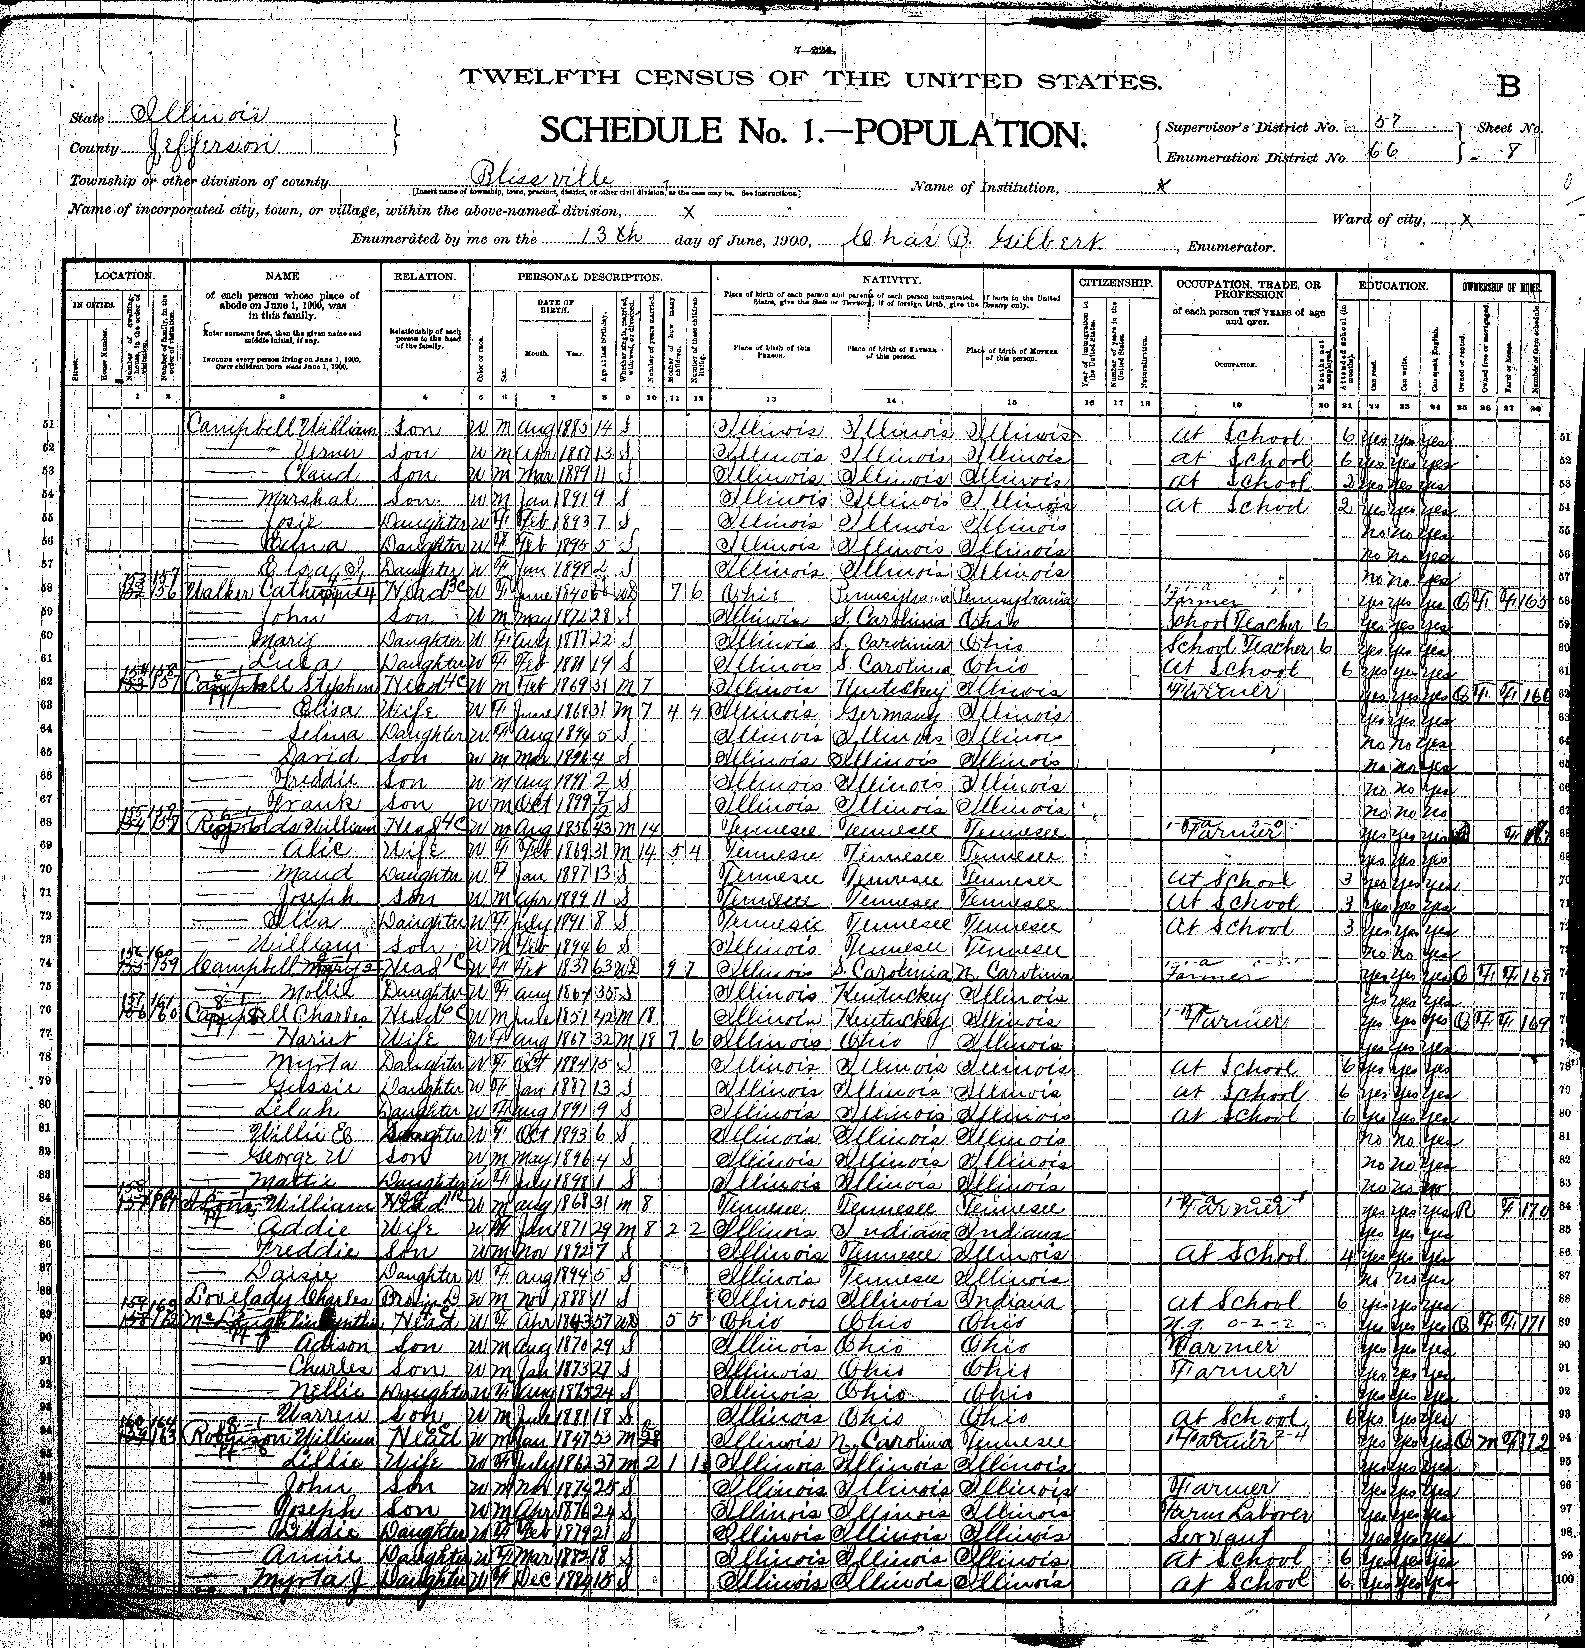 7—224.
TWELFTH CENSUS OF THE UNITED STATES.
B
State Illinois
County Jefferson
SCHEDULE No. 1.—POPULATION.
Supervisor's District No. 57
Enumeration District No. 66
Sheet No. 8
Township or other division of county Blissville
[Insert name of township, town, precinct, district, or other civil division, as the case may be. See instructions.]
Name of Institution, X
Name of incorporated city, town, or village, within the above-named division, X
Ward of city, X
Enumerated by me on the 13th day of June, 1900, Chas B. Gilbert, Enumerator.
LOCATION. NAME RELATION. PERSONAL DESCRIPTION. NATIVITY. CITIZENSHIP. OCCUPATION, TRADE, OR PROFESSION EDUCATION. OWNERSHIP OF HOME.
IN CITIES. of each person whose place of abode on June 1, 1900, was in this family.
Enter surname first, then the given name and middle initial, if any.
Include every person living on June 1, 1900. Omit children born since June 1, 1900.
Relationship of each person to the head of the family.
DATE OF BIRTH. Month. Year.
Place of birth of each person and parents of each person enumerated. If born in the United States, give the State or Territory; if of foreign birth, give the Country only.
Place of birth of this Person. Place of birth of Father of this person. Place of birth of Mother of this person.
of each person TEN YEARS of age and over.
Occupation.
1 2 3 4 5 6 7 8 9 10 11 12 13 14 15 16 17 18 19 20 21 22 23 24 25 26 27 28
51 Campbell William Son W M Aug 1885 14 S Illinois Illinois Illinois At School 6 yes yes yes 51
52 Son W M Apr 1887 13 S Illinois Illinois Illinois At School 6 yes yes yes 52
53 Claud Son W M Mar 1889 11 S Illinois Illinois Illinois At School 2 yes yes yes 53
54 Marshal Son W M Jan 1891 9 S Illinois Illinois Illinois At School 2 yes yes yes 54
55 Josie Daughter W F Feb 1893 7 S Illinois Illinois Illinois no no yes 55
56 Daughter W F Feb 1895 5 S Illinois Illinois Illinois no no yes 56
57 Daughter W F Jan 1898 2 S Illinois Illinois Illinois no no yes 57
58 Walker Head W F June 1840 Wd 7 6 Ohio Pennsylvania Pennsylvania Farmer yes yes yes O F F 165 58
59 John Son W M May 28 S Illinois S. Carolina Ohio School Teacher 6 yes yes yes 59
60 Mary Daughter W F Aug 1877 22 S Illinois S. Carolina Ohio School Teacher 6 yes yes yes 60
61 Daughter W F Feb 19 S Illinois S. Carolina Ohio At School 6 yes yes yes 61
62 Campbell Stephen Head W M Feb 1869 31 M 7 Illinois Kentuckey Illinois Farmer yes yes yes O F F 166 62
63 Elisa Wife W F June 1868 31 M 7 4 4 Illinois Germany Illinois yes yes yes 63
64 Selma Daughter W F Aug 1894 5 S Illinois Illinois Illinois no no yes 64
65 David Son W M Mar 1896 4 S Illinois Illinois Illinois no no yes 65
66 Freddie Son W M Aug 1897 2 S Illinois Illinois Illinois no no yes 66
67 Frank Son W M Oct 1899 7/12 S Illinois Illinois Illinois no no no 67
68 Reynolds William Head W M Aug 1856 43 M 14 Tennesee Tennesee Tennesee Farmer yes yes yes R F 167 68
69 Alic Wife W F Feb 1869 31 M 14 5 4 Tennesee Tennesee Tennesee yes yes yes 69
70 Maud Daughter W F Jan 1887 13 S Tennesee Tennesee Tennesee At School 3 yes yes yes 70
71 Joseph Son W M Apr 1889 11 S Tennesee Tennesee Tennesee At School 3 yes yes yes 71
72 Daughter W F July 1891 8 S Tennesee Tennesee Tennesee At School 3 yes yes yes 72
73 William Son W M Feb 1894 6 S Illinois Tennesee Tennesee no no yes 73
74 Campbell Mary Head W F Feb 1837 63 Wd 9 7 Illinois S. Carolina N. Carolina Farmer yes yes yes O F F 168 74
75 Mollie Daughter W F Aug 1864 35 S Illinois Kentuckey Illinois yes yes yes 75
76 Campbell Charles Head W M June 42 M 18 Illinois Kentuckey Illinois Farmer yes yes yes O F F 169 76
77 Hariet Wife W F Aug 1867 32 M 18 7 6 Illinois Ohio Illinois yes yes yes 77
78 Myrta Daughter W F Oct 1884 15 S Illinois Illinois Illinois At School 6 yes yes yes 78
79 Gussie Daughter W F Jan 1887 13 S Illinois Illinois Illinois At School 6 yes yes yes 79
80 Lelah Daughter W F Aug 1891 9 S Illinois Illinois Illinois At School 6 yes yes yes 80
81 Willie E Daughter W F Oct 1893 6 S Illinois Illinois Illinois no no yes 81
82 George W Son W M May 1896 4 S Illinois Illinois Illinois no no yes 82
83 Mattie Daughter W F July 1898 1 S Illinois Illinois Illinois no no no 83
84 William Head W M Aug 1868 31 M 8 Tennesee Tennesee Tennesee Farmer yes yes yes R F 170 84
85 Addie Wife W F Jan 1871 29 M 8 2 2 Illinois Indiana Indiana yes yes yes 85
86 Freddie Son W M Nov 1892 7 S Illinois Tennesee Illinois At School 4 yes yes yes 86
87 Daisie Daughter W F Aug 1894 5 S Illinois Tennesee Illinois no no yes 87
88 Lovelady Charles W M Nov 1888 11 S Illinois Illinois Indiana At School 6 yes yes yes 88
89 McLaughlin Head W F Apr 1843 57 Wd 5 5 Ohio Ohio Ohio yes yes yes O F F 171 89
90 Adison Son W M Aug 1870 29 S Illinois Ohio Ohio Farmer yes yes yes 90
91 Charles Son W M Jan 1873 27 S Illinois Ohio Ohio Farmer yes yes yes 91
92 Nellie Daughter W F Aug 1875 24 S Illinois Ohio Ohio yes yes yes 92
93 Warren Son W M July 1881 18 S Illinois Ohio Ohio At School 6 yes yes yes 93
94 Robinson William Head W M Jan 1847 53 M Illinois N. Carolina Tennesee Farmer yes yes yes O M F 172 94
95 Lillie Wife W F July 1862 37 M 2 1 1 Illinois Illinois Illinois yes yes yes 95
96 John Son W M Nov 1874 25 S Illinois Illinois Illinois Farmer yes yes yes 96
97 Joseph Son W M Apr 1876 24 S Illinois Illinois Illinois Farm Laborer yes yes yes 97
98 Daughter W F Feb 1879 21 S Illinois Illinois Illinois Servant yes yes yes 98
99 Annie Daughter W F Mar 1882 18 S Illinois Illinois Illinois At School 6 yes yes yes 99
100 Myrta J Daughter W F Dec 1884 15 S Illinois Illinois Illinois At School 6 yes yes yes 100